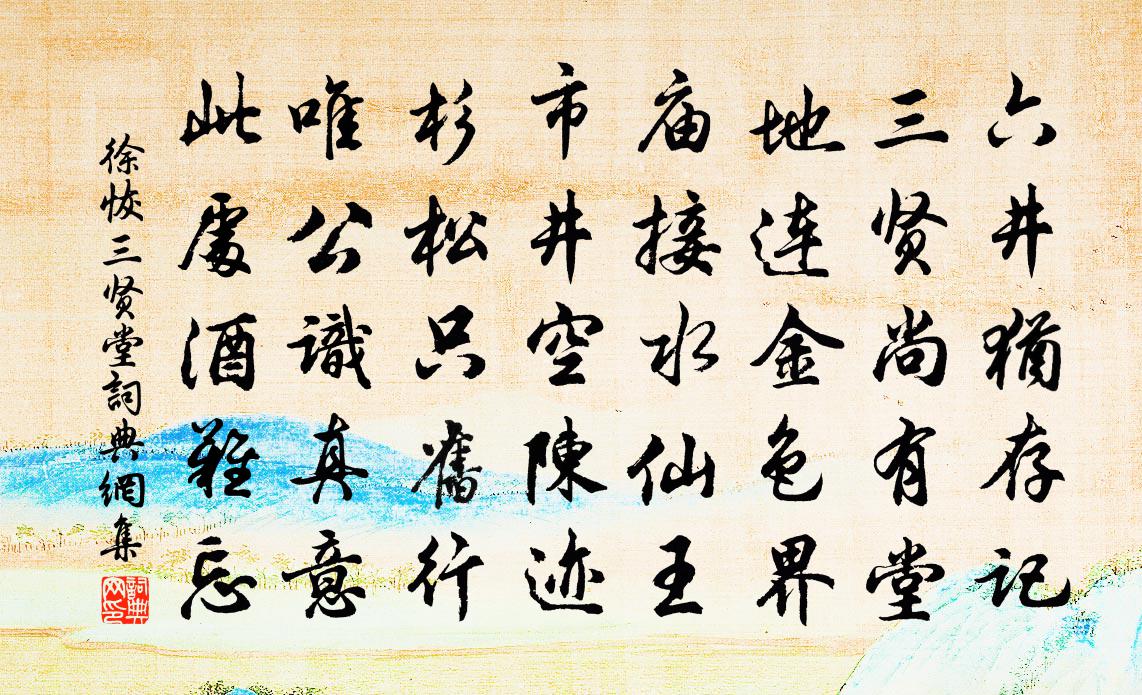 六井猶存记
三贤尚有堂
地连金色界
庙接水仙王
市井空陳迹
杉松只舊行
唯公識真意
此處酒難忘
徐恢三贤堂詞典網集
詞典网印